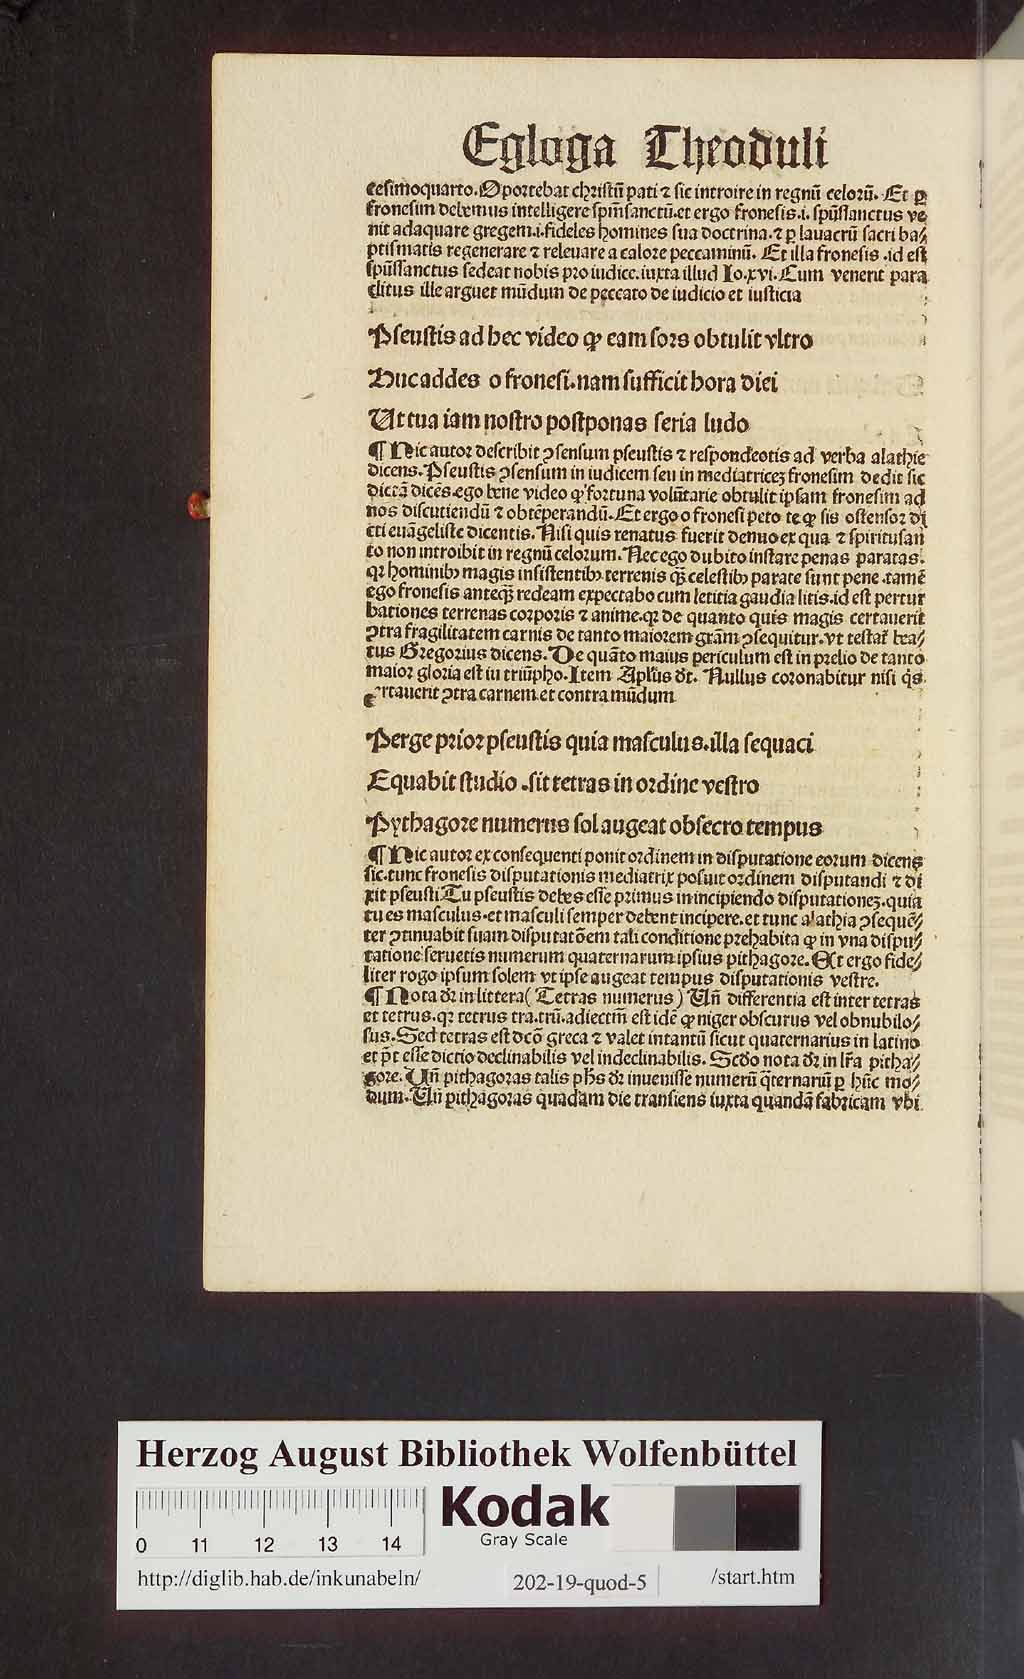 Egloga Theoduli
cesimoquarto. Oportebat christū pati ⁊ sic introire in regnū celorū. Et ꝑ
fronesim debemus intelligere spm̄sanctū.et ergo fronesis.i. spūssanctus ve
nit adaquare gregem.i.fideles homines sua doctrina.⁊ ꝑ lauacrū sacri ba⸗
ptismatis regenerare ⁊ releuare a calore peccaminū. Et illa fronesis .id est
spūssanctus sedeat nobis pro iudice.iuxta illud Io.xvi. Cum venerit para
clitus ille arguet mūdum de peccato de iudicio et iusticia
Pseustis ad hec video ꝙ eam sors obtulit vltro
Huc addes o fronesi.nam sufficit hora diei
Ut tua iam nostro postponas seria ludo
¶ Hic autor describit ꝯsensum pseustis ⁊ respondeotis ad verba alathie
dicens. Pseustis ꝯsensum in iudicem seu in mediatricez fronesim dedit sic
dictā dicēs.ego bene video ꝙ fortuna volūtarie obtulit ipsam fronesim ad
nos discutiendū ⁊ obtēperandū. Et ergo o fronesi peto te ꝙ sis ostensor di
cti euāgeliste dicentis. Nisi quis renatus fuerit denuo ex qua ⁊ spiritusan
to non introibit in regnū celorum. Nec ego dubito instare penas paratas.
qꝛ hominibꝫ magis insistentibꝫ terrenis qꝫ̄ celestibꝫ parate sunt pene .tamē
ego fronesis anteqꝫ̄ redeam expectabo cum letitia gaudia litis.id est pertur
bationes terrenas corporis ⁊ anime.qꝛ de quanto quis magis certauerit
ꝯtra fragilitatem carnis de tanto maiorem grām ꝯsequitur.vt testat᷑ bea⸗
tus Gregorius dicens. De quāto maius periculum est in prelio de tanto
maior gloria est in triūpho. Item Apl̄us dt. Nullus coronabitur nisi qͥs
certauerit ꝯtra carnem et contra mūdum
Perge prior pseustis quia masculus.illa sequaci
Equabit studio .sit tetras in ordine vestro
Pythagore numerus sol augeat obsecro tempus
¶ Hic autor ex consequenti ponit ordinem in disputatione eorum dicens
sic.tunc fronesis disputationis mediatrix posuit ordinem disputandi ⁊ di
xit pseusti. Tu pseustis debes esse primus in incipiendo disputationez.quia
tu es masculus.et masculi semper debent incipere.et tunc alathia ꝯsequē⸗
ter ꝯtinuabit suam disputatōem tali conditione prehabita ꝙ in vna dispu⸗
tatione seruetis numerum quaternarum ipsius pithagore. Et ergo fide⸗
liter rogo ipsum solem vt ipse augeat tempus disputationis vestre.
¶ Nota dꝛ in littera ( Tetras numerus ) Un̄ differentia est inter tetras
et tetrus.qꝛ tetrus tra.trū.adiectm̄ est idē ꝙ niger obscurus vel obnubilo⸗
sus. Sed tetras est dcō greca ⁊ valet intantū sicut quaternarius in latino
et p̄t esse dictio declinabilis vel indeclinabilis. Scdo nota dꝛ in lr̄a pitha⸗
gore. Un̄ pithagoras talis phs̄ dꝛ inuenisse numerū q̄ternariū ꝑ hūc mo⸗
dum. Un̄ pithagoras quadam die transiens iuxta quandā fabricam vbi
Herzog August Bibliothek Wolfenbüttel
0 11 12 13 14
Kodak
Gray Scale
http://diglib.hab.de/inkunabeln/
202-19-quod-5
/start.htm